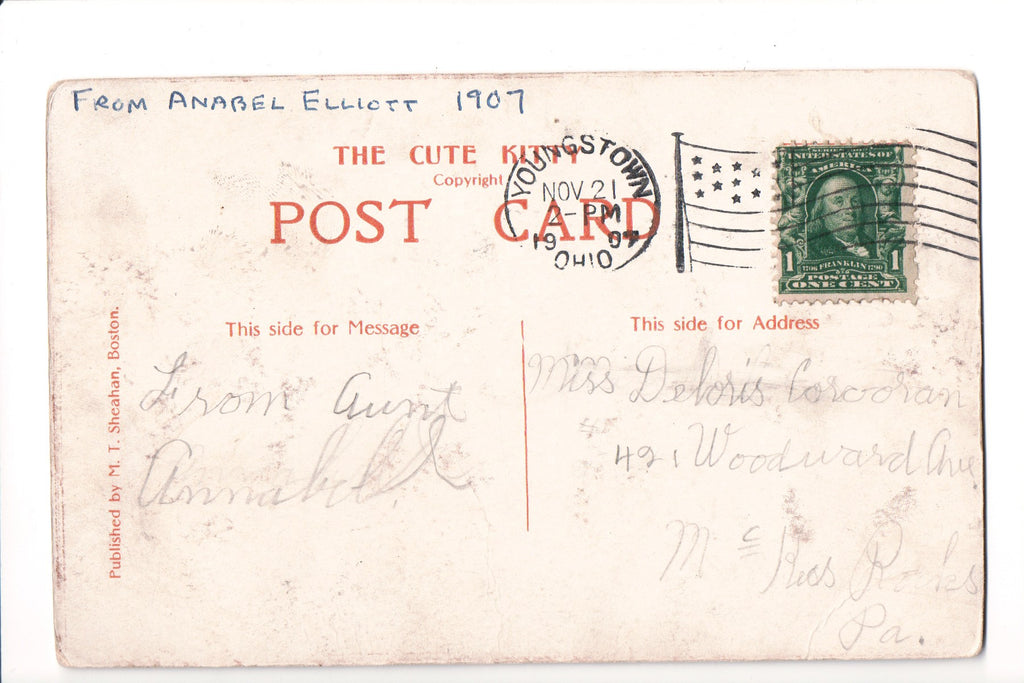 FROM ANABEL ELLIOTT 1907
THE CUTE KITTY
Copyright
POST CARD
YOUNGSTOWN
NOV 21
2-PM
1907
OHIO
UNITED STATES OF
AMERICA
1 1
1706 FRANKLIN 1790
POSTAGE
ONE CENT
This side for Message
This side for Address
Published by M. T. Sheahan, Boston.
From Aunt
Annabel
Miss Deloris Corcoran
421 Woodward Ave
Mc Kees Rocks
Pa.